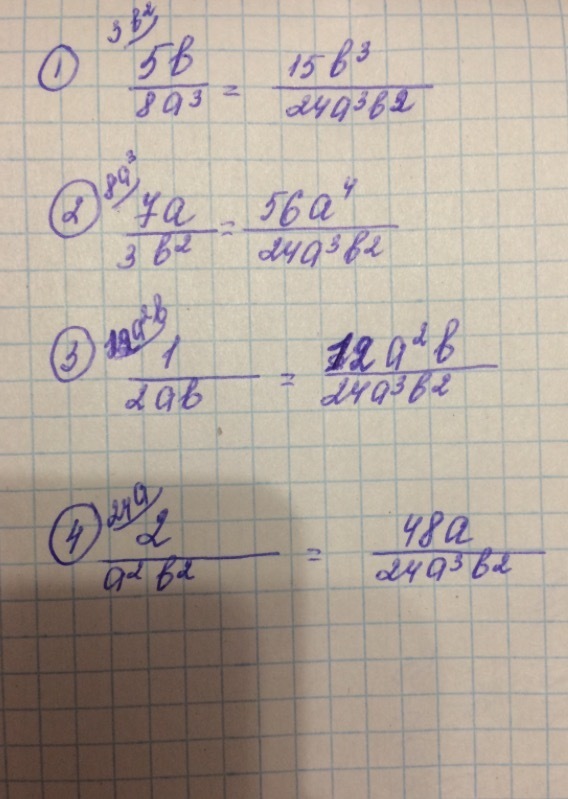 ① 3b²/ 5b/8a³ = 15b³/24a³b²
② 8a³/ 7a/3b² = 56a⁴/24a³b²
③ 12a²b/ 1/2ab = 12a²b/24a³b²
④ 24a/ 2/a²b² = 48a/24a³b²